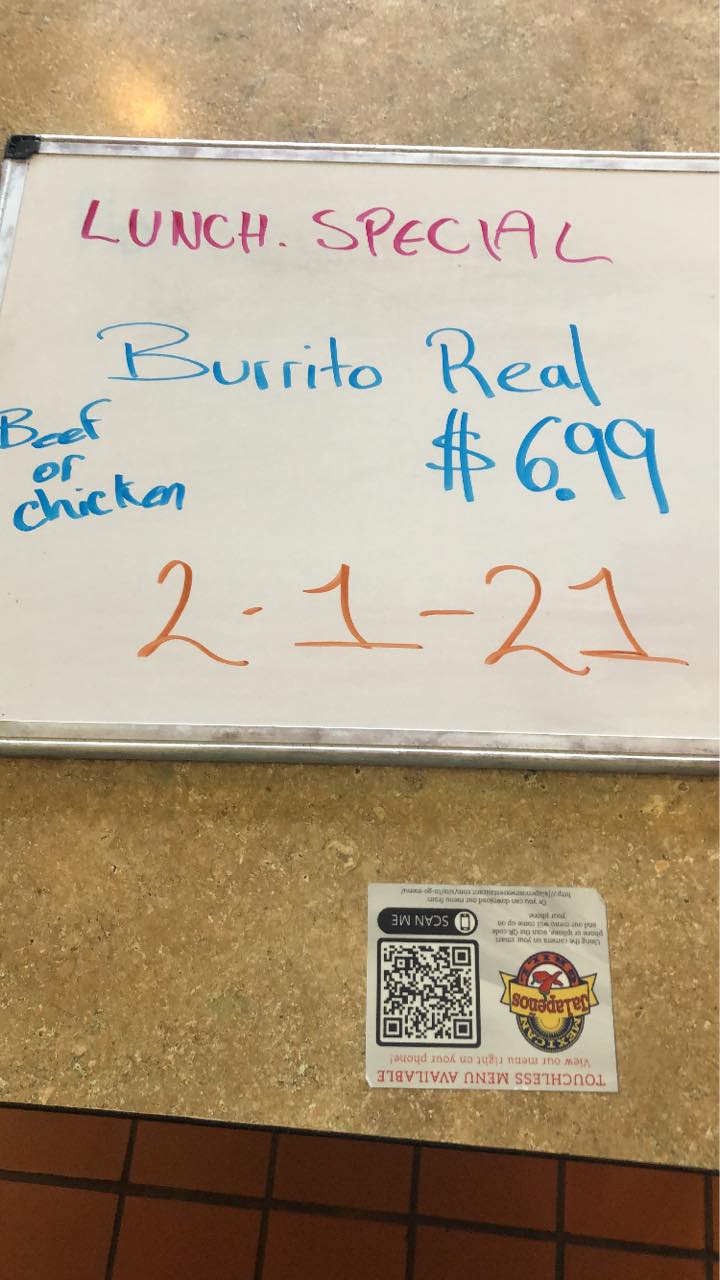 LUNCH. SPECIAL
Burrito Real
Beef
or
chicken
$6.99
2-1-21
TOUCHLESS MENU AVAILABLE
View our menu right on your phone!
MEXICAN
Jalapenos
Using the camera on your smart
phone or iphone, scan the QR code
and our menu will come up on
your phone
SCAN ME
Or you can download our menu from: